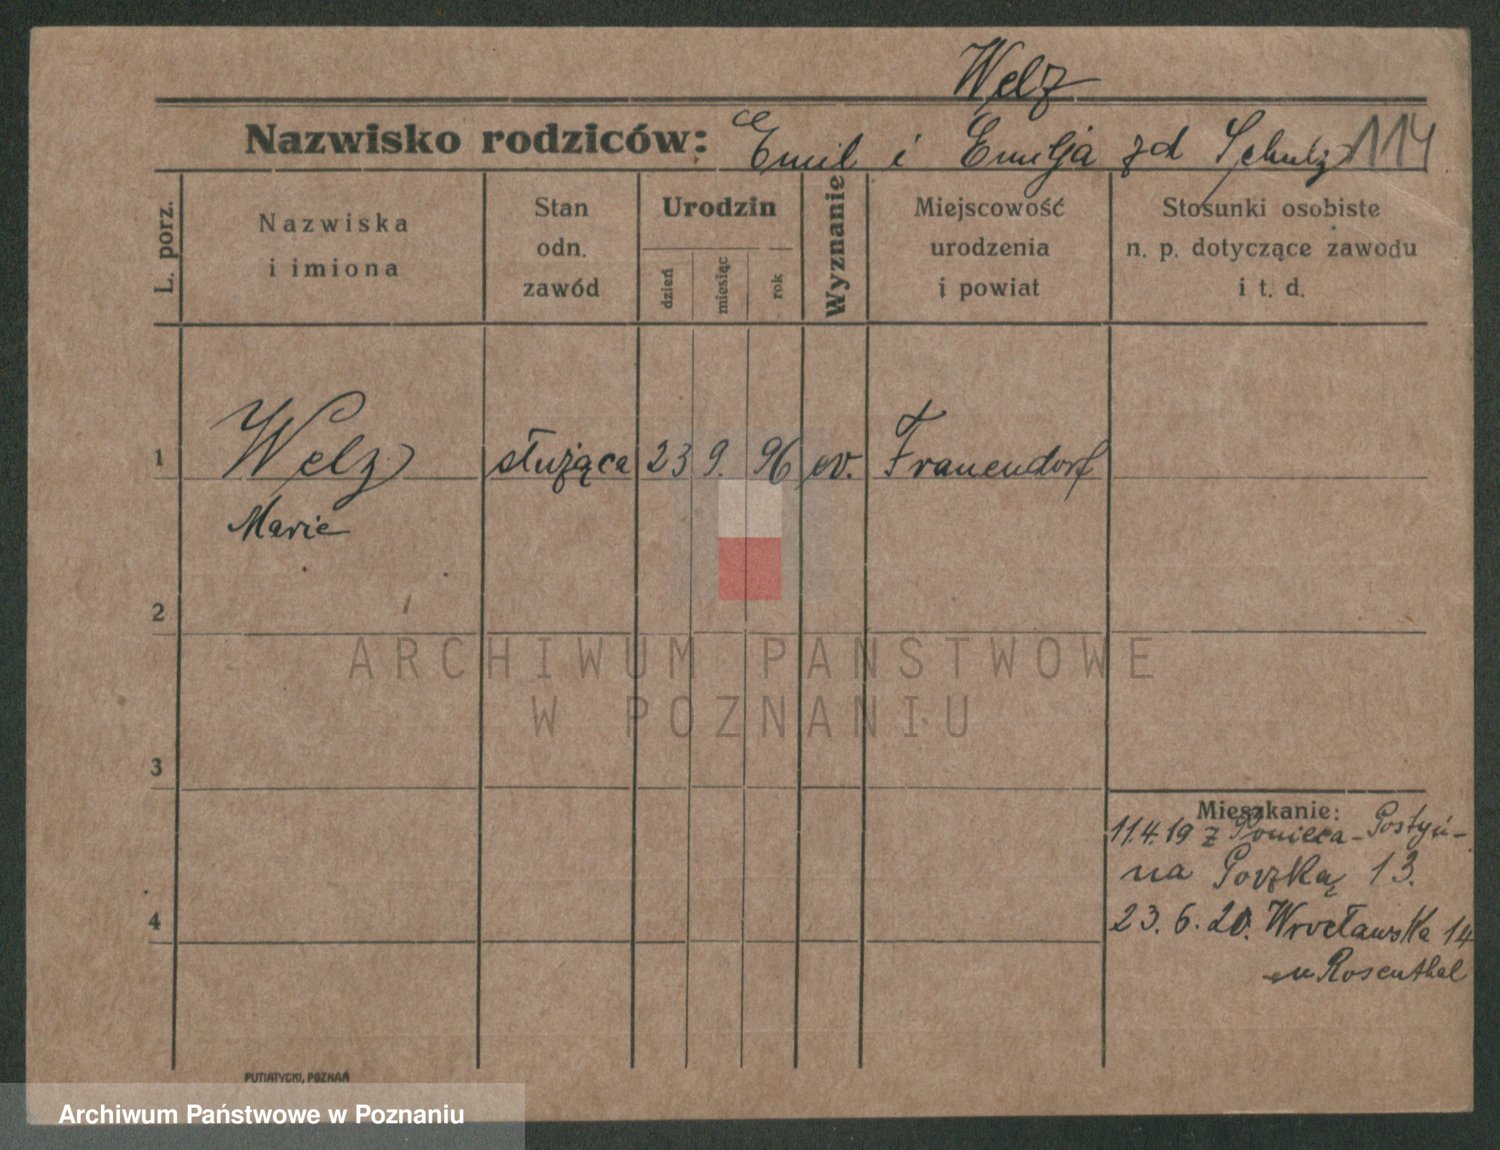 Welz
Nazwisko rodziców: Emil i Emilja zd Schulz 114
L. porz.
Nazwiska
i imiona
Stan
odn.
zawód
Urodzin
dzień
miesiąc
rok
Wyznanie
Miejscowość
urodzenia
i powiat
Stosunki osobiste
n. p. dotyczące zawodu
i t. d.
1 Welz służąca 23 9. 96 ev. Frauendorf
Marie
2
ARCHIWUM PAŃSTWOWE
W POZNANIU
3
Mieszkanie:
11.4.19 z Ponieca - Gostyń -
na 13.
4
23. 6. 20. Wrocławska 14
u Rosenthal
PUTIATYCKI, POZNAŃ
Archiwum Państwowe w Poznaniu